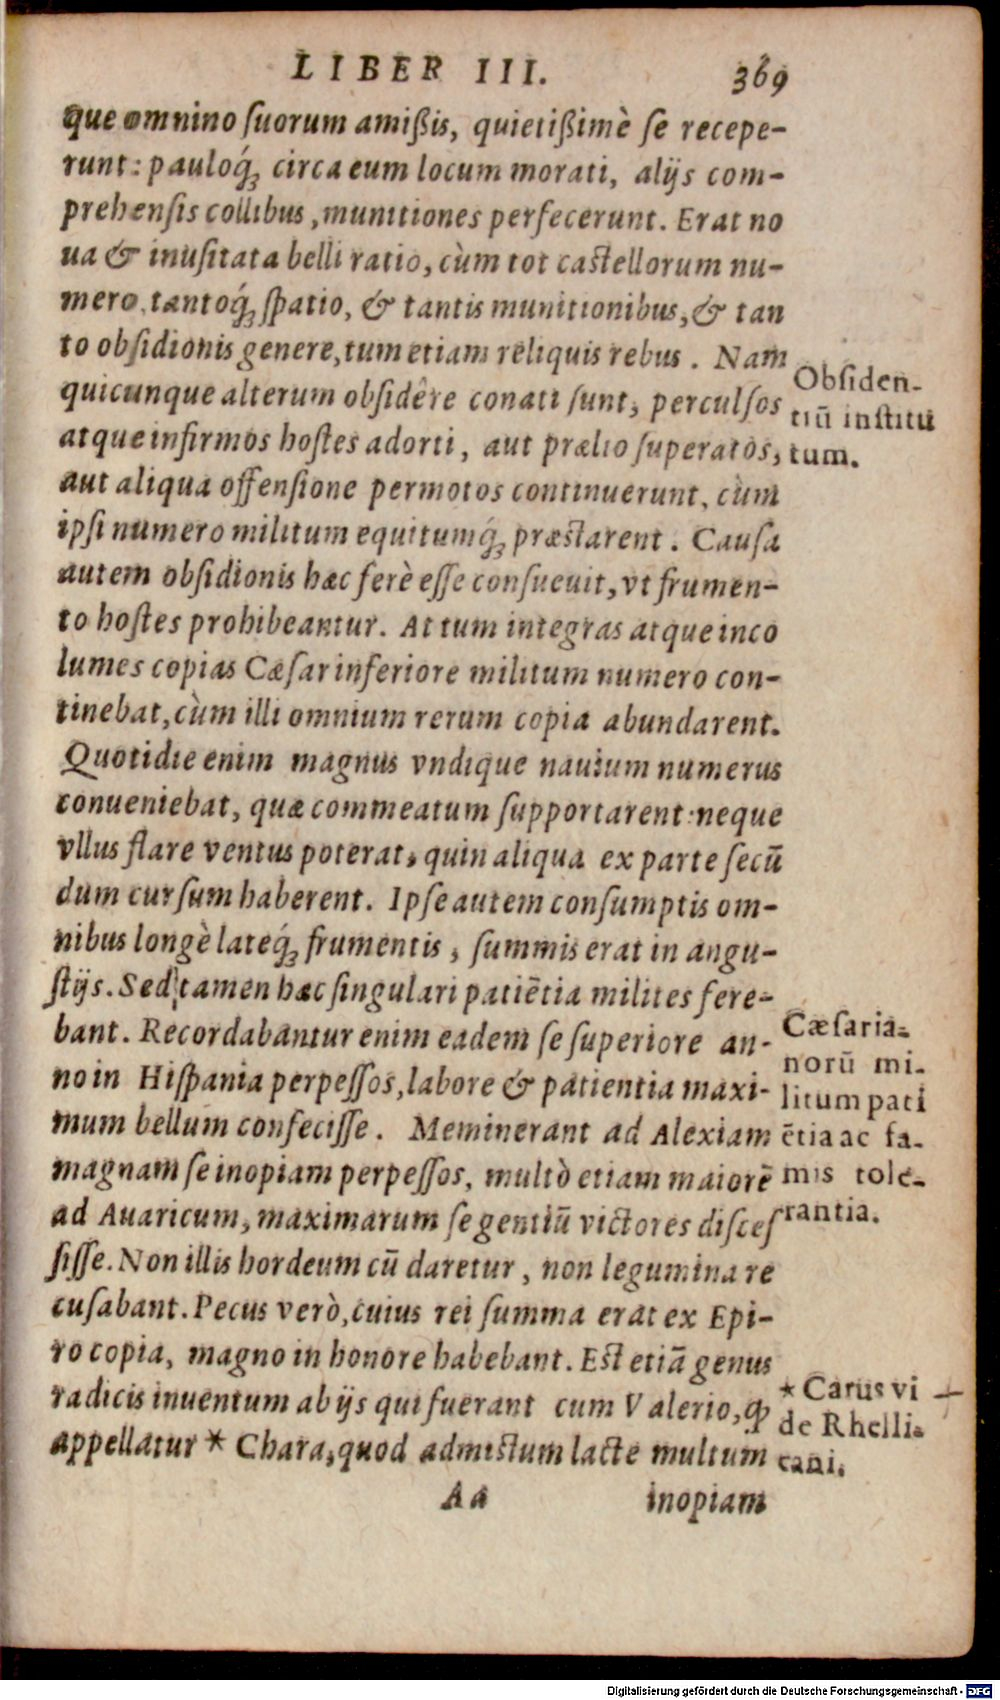 LIBER III. 369
que omnino ſuorum amißis, quietißimè ſe recepe-
runt: pauloq́; circa eum locum morati, alijs com-
prehenſis collibus, munitiones perfecerunt. Erat no
ua & inuſitata belli ratio, cùm tot caſtellorum nu-
mero, tantoq́; ſpatio, & tantis munitionibus, & tan
to obſidionis genere, tum etiam reliquis rebus. Nam
Obſiden-
quicunque alterum obſidêre conati ſunt, perculſos
tiũ inſtitu
atque infirmos hoſtes adorti, aut prælio ſuperatos,
tum.
aut aliqua offenſione permotos continuerunt, cùm
ipſi numero militum equitumq́; præſtarent. Cauſa
autem obſidionis hæc ferè eſſe conſueuit, vt frumen-
to hoſtes prohibeantur. At tum integras atque inco
lumes copias Cæſar inferiore militum numero con-
tinebat, cùm illi omnium rerum copia abundarent.
Quotidie enim magnus vndique nauium numerus
conueniebat, quæ commeatum ſupportarent: neque
vllus flare ventus poterat, quin aliqua ex parte ſecũ
dum curſum haberent. Ipſe autem conſumptis om-
nibus longè lateq́; frumentis, ſummis erat in angu-
ſtijs. Sed tamen hæc ſingulari patiẽtia milites fere-
bant. Recordabantur enim eadem ſe ſuperiore an-
Cæſaria-
norũ mi-
no in Hiſpania perpeſſos, labore & patientia maxi-
litum pati
mum bellum confeciſſe. Meminerant ad Alexiam
ẽtia ac fa-
magnam ſe inopiam perpeſſos, multò etiam maiorẽ
mis tole-
ad Auaricum, maximarum ſe gentiũ victores diſceſ
rantia.
ſiſſe. Non illis hordeum cũ daretur, non legumina re
cuſabant. Pecus verò, cuius rei ſumma erat ex Epi-
ro copia, magno in honore habebant. Eſt etiã genus
radicis inuentum ab ijs qui fuerant cum Valerio, ꝙ
* Carus vi
de Rhelli-
appellatur * Chara, quod admiſtum lacte multum
cani.
Aa inopiam
Digitalisierung gefördert durch die Deutsche Forschungsgemeinschaft - DFG